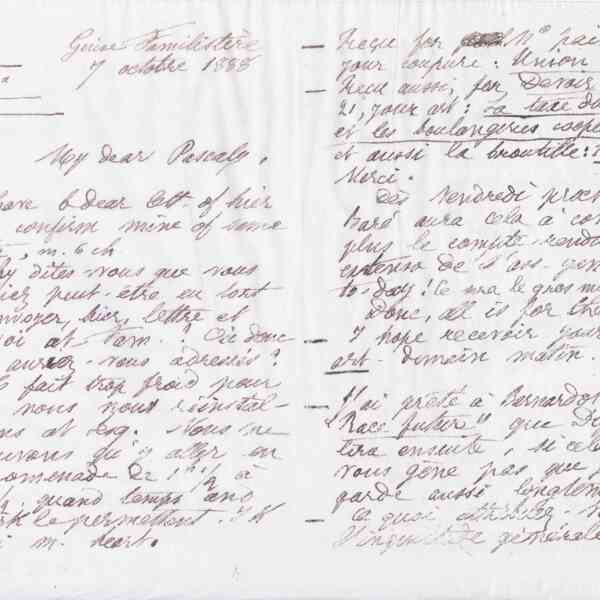 Guise Familistère
7 octobre 1888
My dear Pascaly,
have dear lett. of hier
confirm mine of same
m. ch
dites-vous que vous
hier peut-être eu tort
envoyer, hier, lettre et
at Fam. ? Où donc
aurez-vous adressés ?
fait trop froid pour
nous nous réinstal-
at Leg. Nous ne
qu'y aller en
promenade de 1 1/2 à
quand temps and
le permettent.
m. heart.
Reçu for N°
your coupure : Union
Reçu aussi, for Devoir
21, your art : La taxe du
et les boulangeries coopé
et aussi la broutille :
Merci.
Dès Vendredi proch
Baré aura cela à com
plus le compte-rendu
extenso de l'ass. gén
to-day ! Ce sera le gros mo
Donc, all is for the
I hope recevoir your
art. demain matin.
J'ai prêté à Bernardot
"Race future" que
lira ensuite, si cela
vous gêne pas que
garde aussi longtem
A quoi attribuez-v
générale